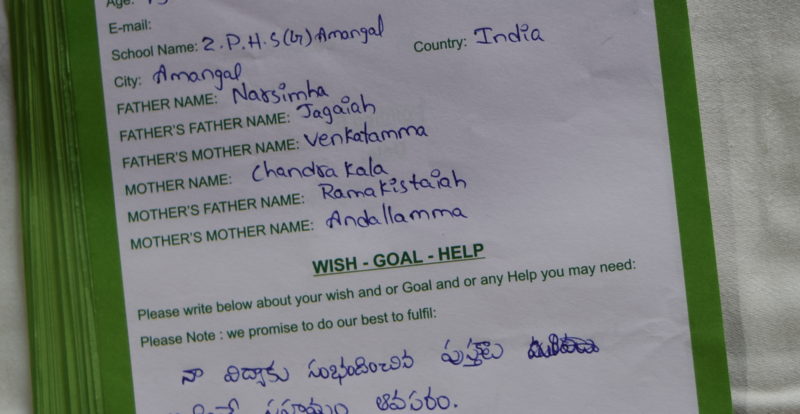 Age:
E-mail:
School Name: Z.P.H.S(G) Amangal
Country: India
City: Amangal
FATHER NAME: Narsimha
FATHER'S FATHER NAME: Jagaiah
FATHER'S MOTHER NAME: Venkatamma
MOTHER NAME: Chandra kala
MOTHER'S FATHER NAME: Ramakistaiah
MOTHER'S MOTHER NAME: Andallamma
WISH - GOAL - HELP
Please write below about your wish and or Goal and or any Help you may need:
Please Note : we promise to do our best to fulfil:
నా విద్యాకు సంభందించిన పుస్తకాలు
సహాయం అవసరం.